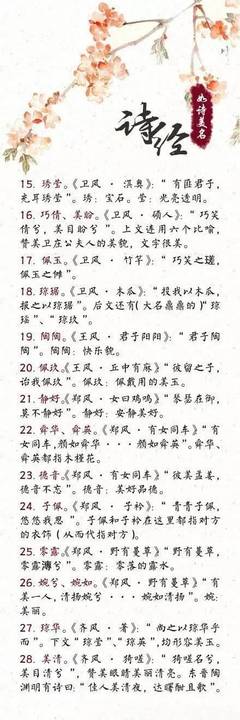 诗经
如诗美名
15. 琇莹。《卫风 · 淇奥》：“有匪君子，
充耳琇莹”。琇：宝石。莹：光亮透明。
16. 巧倩、美盼。《卫风 · 硕人》：“巧笑
倩兮，美目盼兮”。上文连用六个比喻，
赞美卫庄公夫人的美貌，文字很美。
17. 佩玉。《卫风 · 竹竿》：“巧笑之瑳，
佩玉之傩”。
18. 琼琚。《卫风 · 木瓜》：“投我以木瓜，
报之以琼琚”。后文还有（大名鼎鼎的）“琼
瑶”、“琼玖”。
19. 陶陶。《王风 · 君子阳阳》：“君子陶
陶”。陶陶：快乐貌。
20. 佩玖。《王风 · 丘中有麻》“彼留之子，
诒我佩玖”。佩玖：佩戴用的美玉。
21. 静好。《郑风 · 女曰鸡鸣》“琴瑟在御，
莫不静好”。静好：安静美好。
22. 舜华、舜英。《郑风 · 有女同车》“有
女同车，颜如舜华 · · · 颜如舜英”。舜华、
舜英都指木槿花。
23. 德音。《郑风 · 有女同车》“彼美孟姜，
德音不忘”。德音：美好品德。
24. 子佩。《郑风 · 子衿》：“青青子佩，
悠悠我思”。子佩和子衿在这里都指对方
的衣饰（从而代指对方）。
25. 零露。《郑风 · 野有蔓草》“野有蔓草，
零露漙兮”。零露：零落的露水。
26. 婉兮、婉如。《郑风 · 野有蔓草》“有
美一人，清扬婉兮 · · · 婉如清扬”。婉：
美丽。
27. 琼华。《齐风 · 著》：“尚之以琼华乎
而”。下文“琼莹”、“琼英”，均形容美玉。
28. 美清。《齐风 · 猗嗟》：“猗嗟名兮，
美目清兮”，赞美眼睛美丽清亮。东晋陶
渊明有诗曰：“佳人美清夜，达曙酣且歌”。